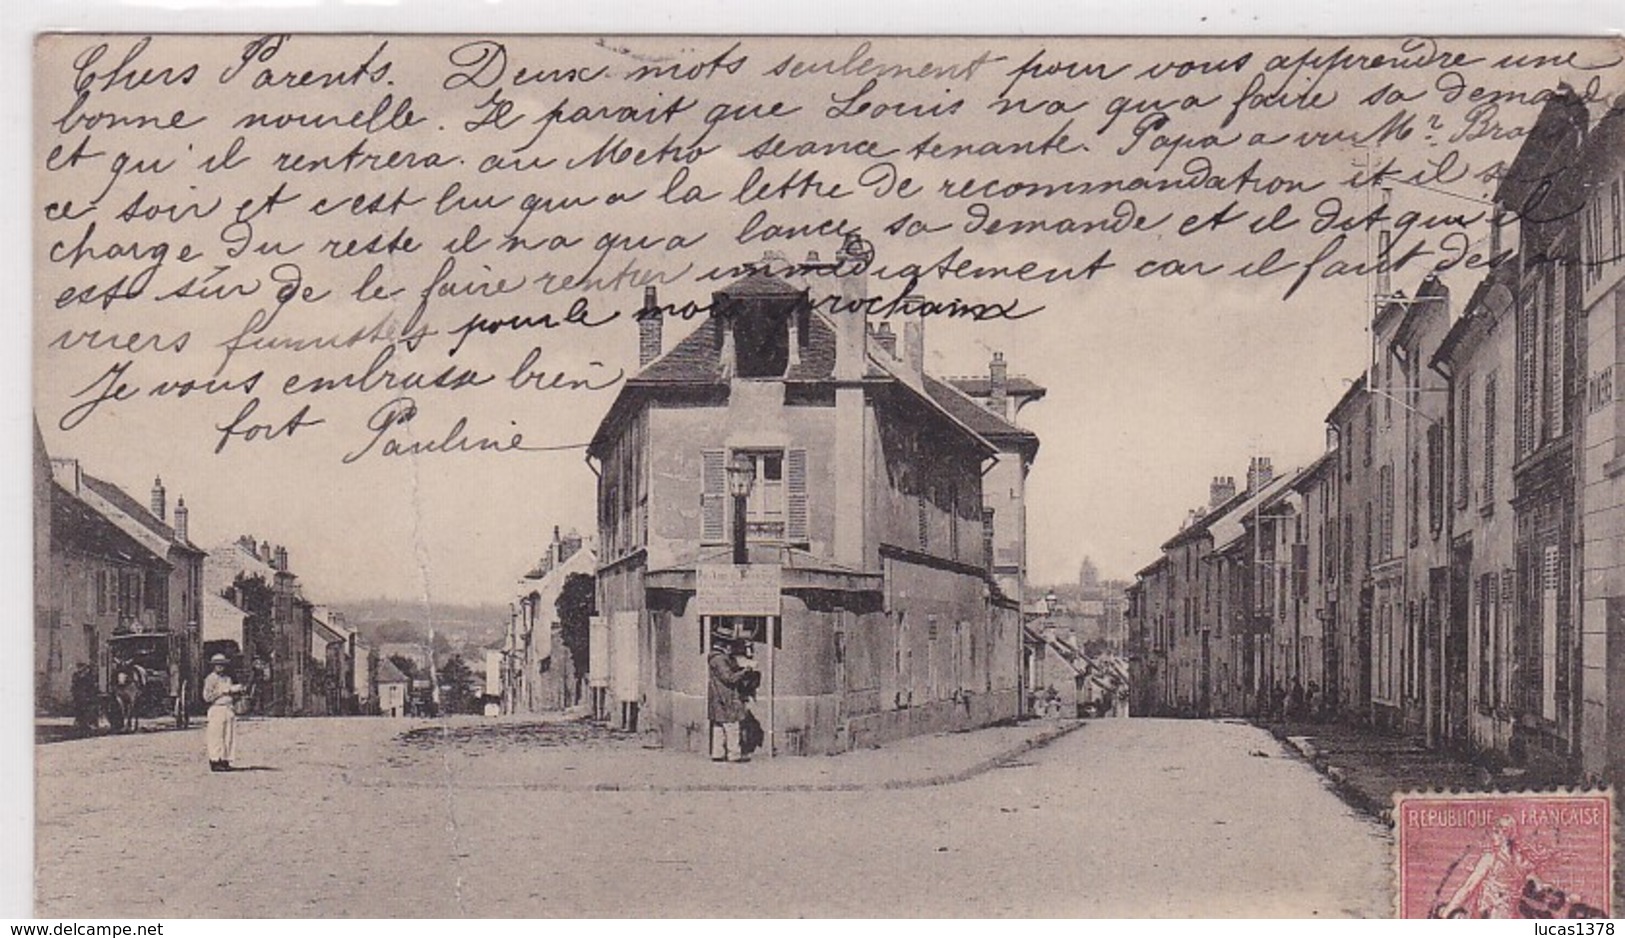 Chers Parents. Deux mots seulement pour vous apprendre une
bonne nouvelle. Il parait que Louis n a qu a faire sa demand
et qu'il rentrera au Metro seance tenante. Papa a vu Mr.
ce soir et c est lui qui a la lettre de recommandation et il se
charge du reste il n a qu a lancer sa demande et il dit qu il
est sûr de le faire rentrer immédiatement car il faut des
vriers pour le mois prochain
Je vous embrasse bien
fort Pauline
REPUBLIQUE FRANÇAISE
delcampe.net
lucas1378